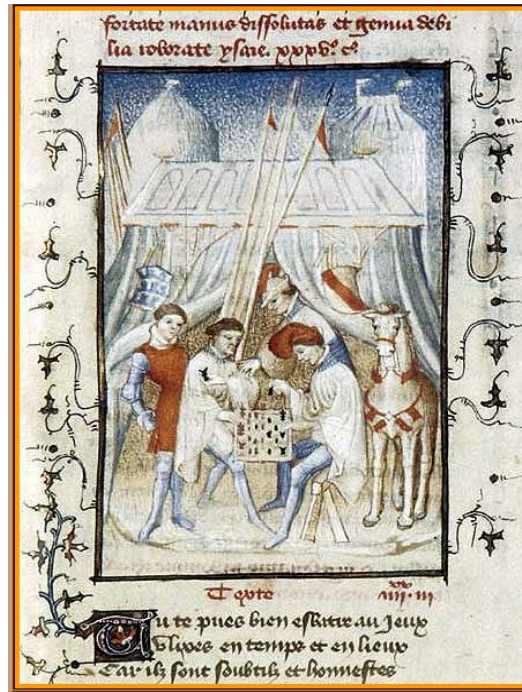 fortate manus dissolutas et genua debi
lia roborate ysaie. xxxv° c°.
Texte
Tu te pues bien esbatre au Jeux
Ulixes en temps et en lieux
Car ilz sont soubtilz et honnestes